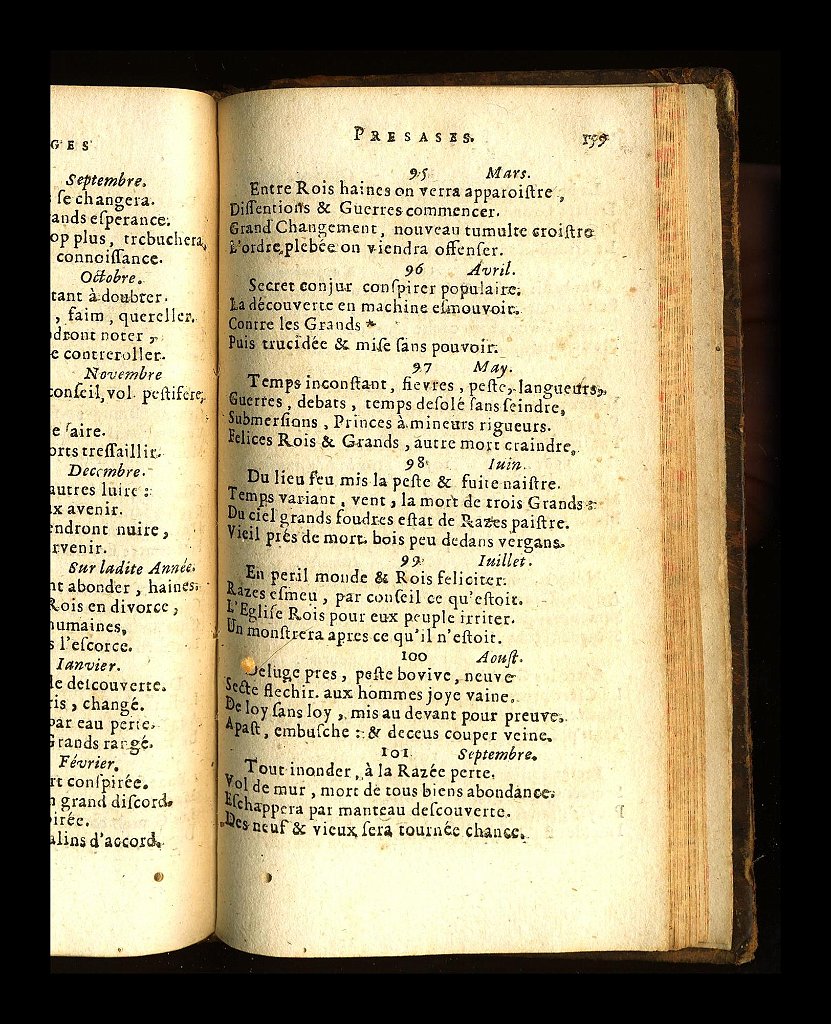 GES
Septembre.
se changera.
ands esperance.
op plus, trebuchera,
connoiſſance.
Octobre.
tant à doubter.
, faim, quereller.
dront noter,
contreroller.
Novembre
conſeil, vol peſtifere,
faire.
orts treſſaillir.
Decembre.
autres luire :
ux avenir.
endront nuire,
rvenir.
Sur ladite Année.
nt abonder, haines.
Rois en divorce,
humaines,
s l'eſcorce.
Ianvier.
le deſcouverte.
ris, changé.
par eau perte.
Grands rangé.
Février.
rt conſpirée.
n grand diſcord.
irée.
alins d'accord.
PRESASES.
159
95 Mars.
Entre Rois haines on verra apparoiſtre,
Diſſentions & Guerres commencer.
Grand Changement, nouveau tumulte croiſtre
L'ordre plebée on viendra offenſer.
96 Avril.
Secret conjur conſpirer populaire.
La découverte en machine eſmouvoir.
Contre les Grands *
Puis trucidée & miſe ſans pouvoir.
97 May.
Temps inconſtant, fievres, peſte, langueurs,
Guerres, debats, temps deſolé ſans feindre,
Submerſions, Princes à mineurs rigueurs.
Felices Rois & Grands, autre mort craindre,
98 Iuin.
Du lieu feu mis la peſte & fuite naiſtre.
Temps variant, vent, la mort de trois Grands :
Du ciel grands foudres eſtat de Razes paiſtre.
Vieil prés de mort. bois peu dedans vergans.
99 Iuillet.
En peril monde & Rois feliciter.
Razes eſmeu, par conſeil ce qu'eſtoit.
L'Egliſe Rois pour eux peuple irriter.
Un monſtrera apres ce qu'il n'eſtoit.
100 Aouſt.
Deluge pres, peſte bovive, neuve
Secte flechir. aux hommes joye vaine.
De loy ſans loy, mis au devant pour preuve.
Apaſt, embuſche : & deceus couper veine.
101 Septembre.
Tout inonder, à la Razée perte.
Vol de mur, mort de tous biens abondance.
Eſchappera par manteau deſcouverte.
Des neuf & vieux ſera tournée chance.